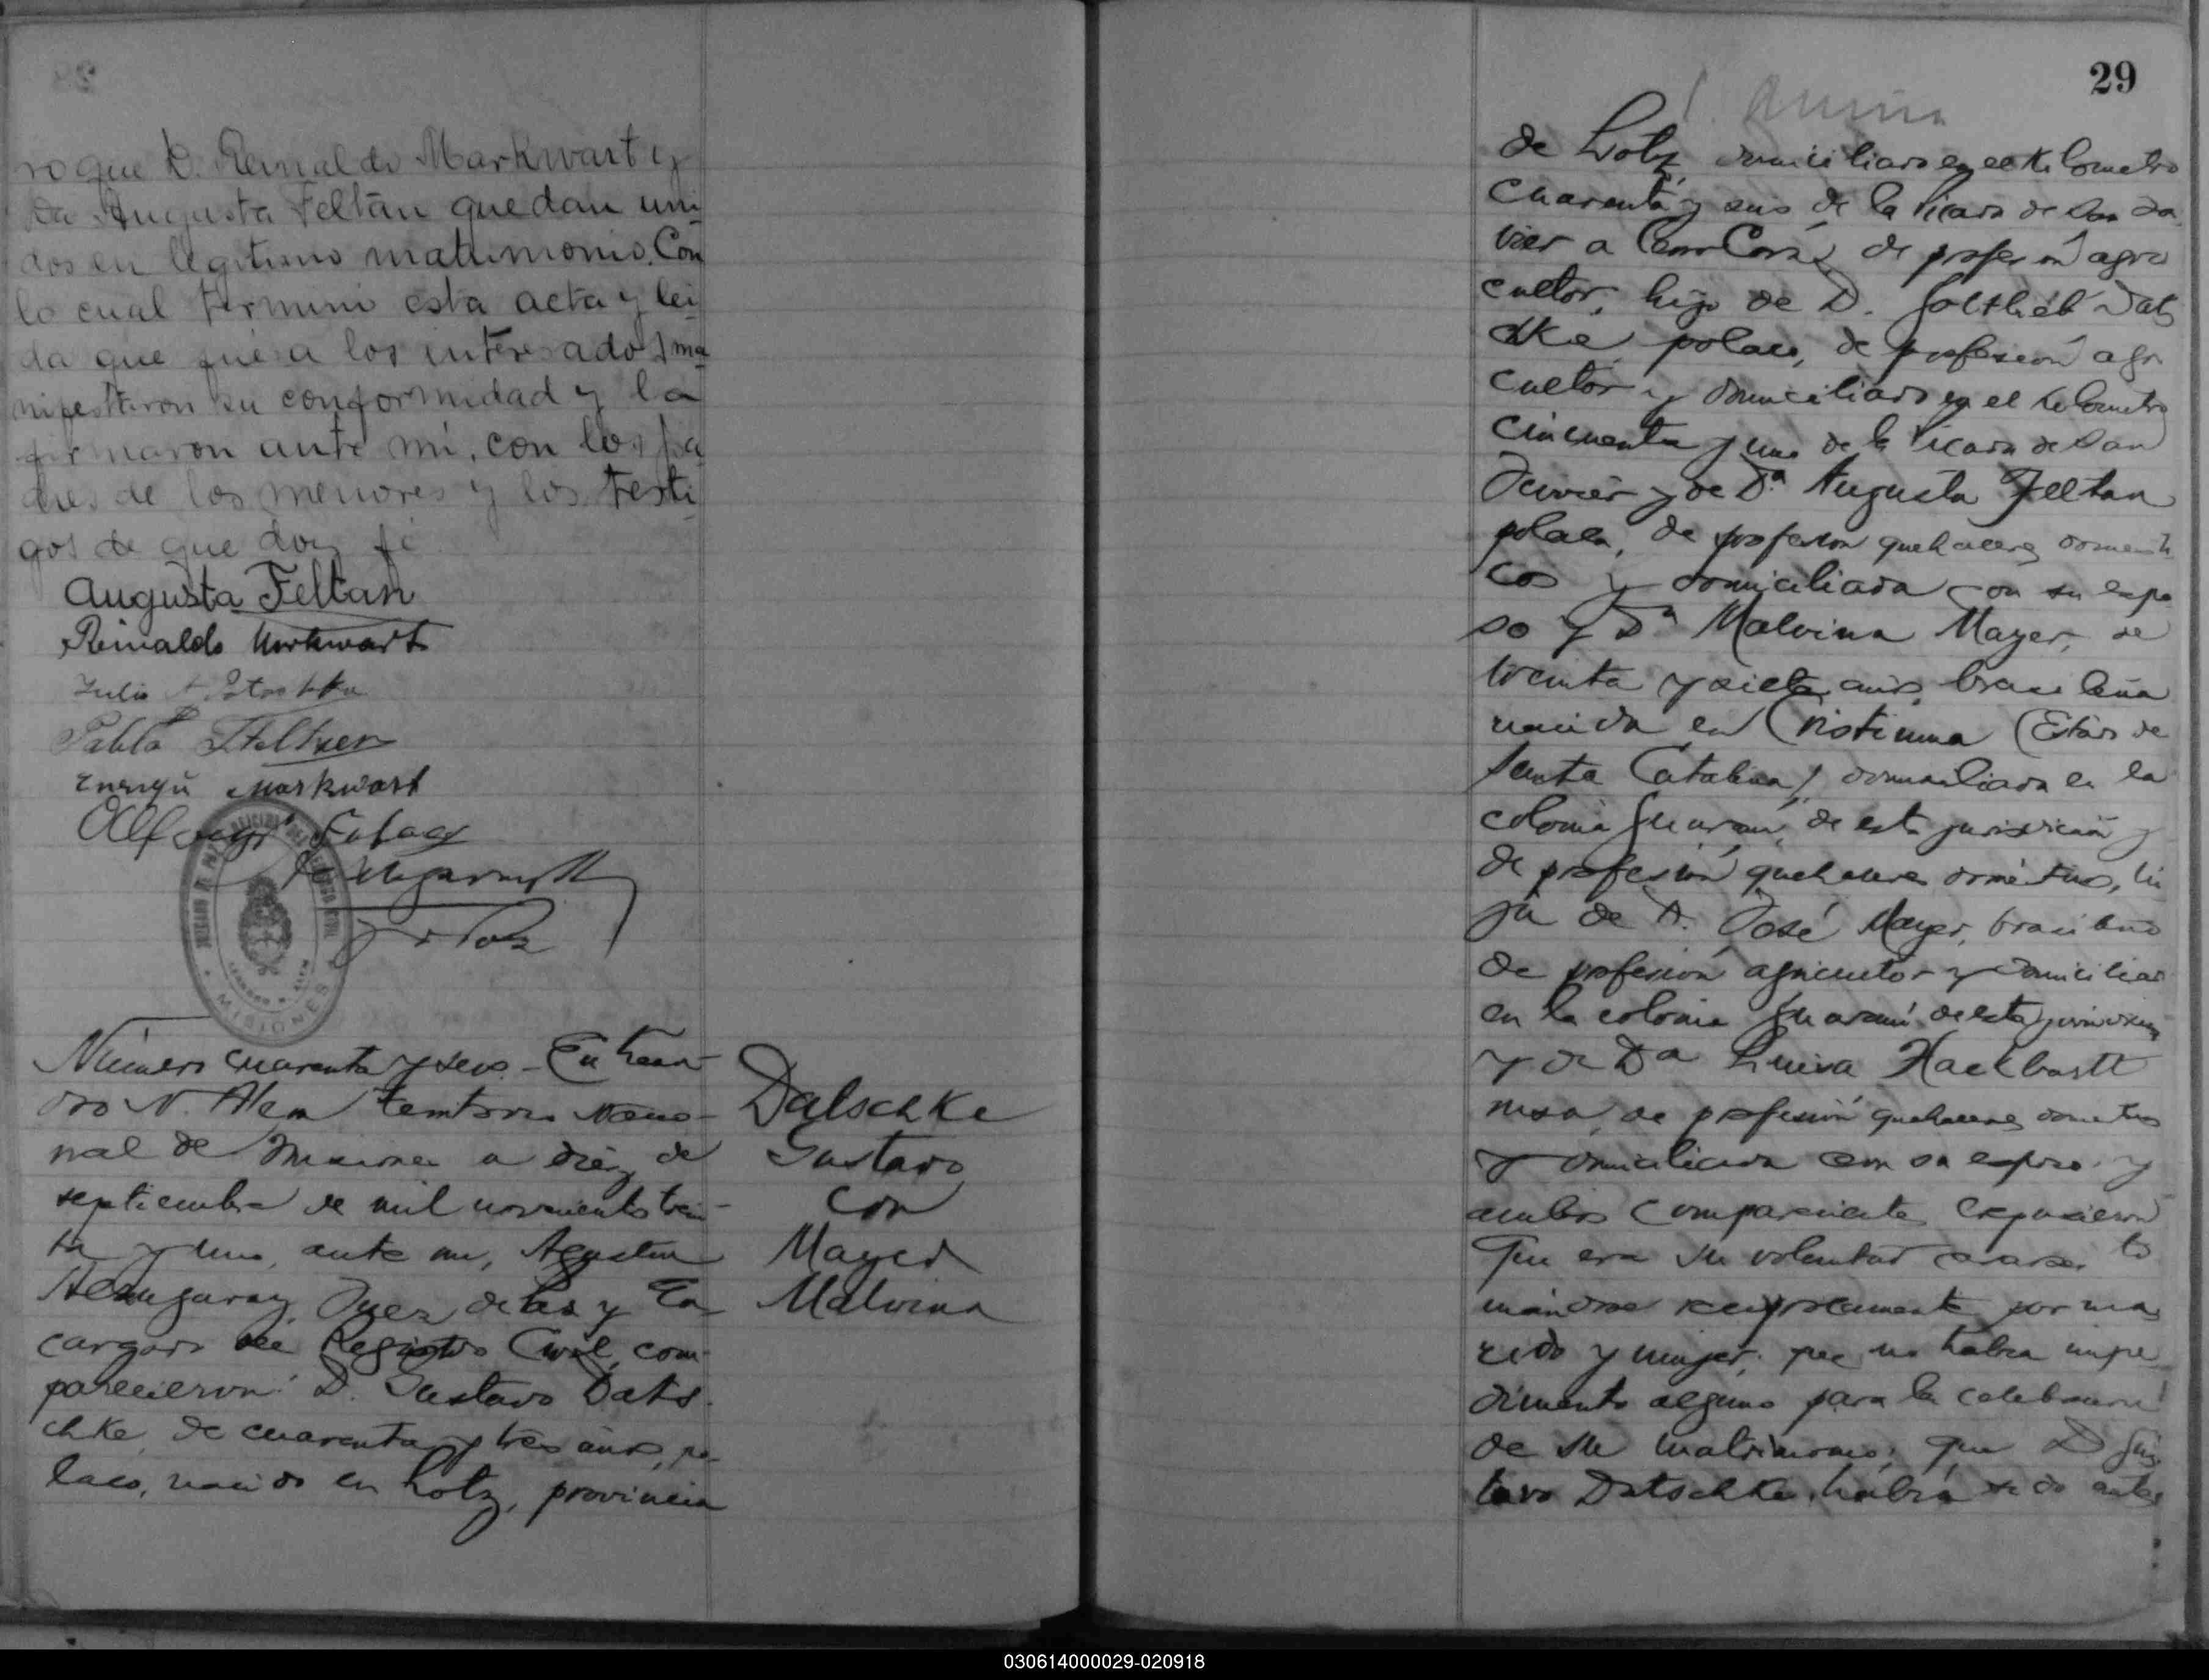 ro que D. Reinaldo Markwart y
Da Augusta Feltan quedan uni-
dos en legitimo matrimonio. Con
lo cual terminó esta acta y lei-
da que fué a los interesados ma-
nifestaron su conformidad y la
firmaron ante mí, con los pa-
dres de los menores y los testi-
gos de que doy fé
Augusta Feltan
Reinaldo Markwart
Julio
Pablo
Markwart
MISIONES
Número cuarenta y seis.- En Lean-
dro N. Alem territorio Nacio-
nal de Misiones a diez de
septiembre de mil novecientos trein-
ta y uno, ante mi, Agustin
Juez de Paz y En
cargado del Registro Civil, com-
parecieron: D. Gustavo Dats-
chke, de cuarenta y tres años, po-
laco, nacido en Lotz, provincia
Datschke
Gustavo
con
Mayer
Malvina
29
de Lotz, domiciliado en el Kilometro
cuarenta y seis de la Picada de San Ja
vier a Cerro Corá, de profesión agri
cultor, hijo de D. Gottlieb Dats
chke polaco, de profesión agri
cultor y domiciliado en el kilometro
cincuenta y uno de la Picada de San
Javier y de Da. Augusta Feltan
polaca, de profesion quehaceres domesti
cos y domiciliada con su espo
so y Da Malvina Mayer, de
treinta y siete años, brasileña
nacida en (Estado de
Santa Catalina) domiciliada en la
colonia Guaraní, de esta jurisdicción y
de profesión quehaceres domésticos, hi
ja de D. José Mayer, brasileño
de profesión agricultor y domiciliado
en la colonia Guaraní de esta jurisdiccion
y de Da Luisa Hackbartt
rusa, de profesión quehaceres domesticos
y domiciliada con su esposo y
ambos comparecientes expusieron
Que era su voluntad casarse to
mándose reciprocamente por ma
rido y mujer; que no habia impe
dimento alguno para la celebracion
de su matrimonio; que D. Gus
tavo Datschke, habia sido antes
030614000029-020918